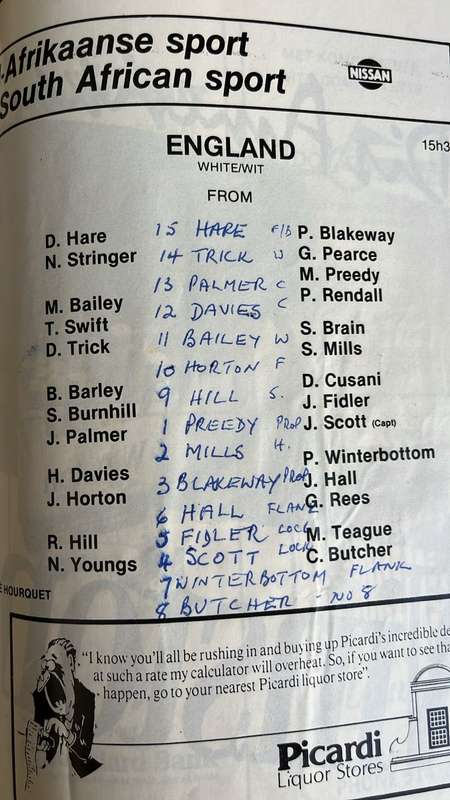 -Afrikaanse sport
South African sport
NISSAN
ENGLAND
WHITE/WIT
15h3
FROM
D. Hare
N. Stringer
M. Bailey
T. Swift
D. Trick
B. Barley
S. Burnhill
J. Palmer
H. Davies
J. Horton
R. Hill
N. Youngs
15 HARE F/B
14 TRICK W
13 PALMER C
12 DAVIES C
11 BAILEY W
10 HORTON F
9 HILL S.
1 PREEDY PROP
2 MILLS H.
3 BLAKEWAY PROP
6 HALL FLANK
5 FIDLER LOCK
4 SCOTT LOCK
7 WINTERBOTTOM FLANK
8 BUTCHER - NO 8
P. Blakeway
G. Pearce
M. Preedy
P. Rendall
S. Brain
S. Mills
D. Cusani
J. Fidler
J. Scott (Capt)
P. Winterbottom
J. Hall
G. Rees
M. Teague
C. Butcher
E HOURQUET
"I know you'll all be rushing in and buying up Picardi's incredible de
at such a rate my calculator will overheat. So, if you want to see tha
happen, go to your nearest Picardi liquor store".
Picardi
Liquor Stores